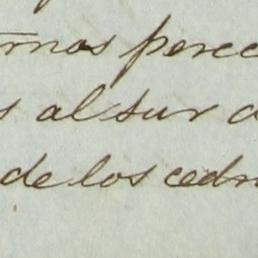 rnos perec
s al sur d
de los cedr